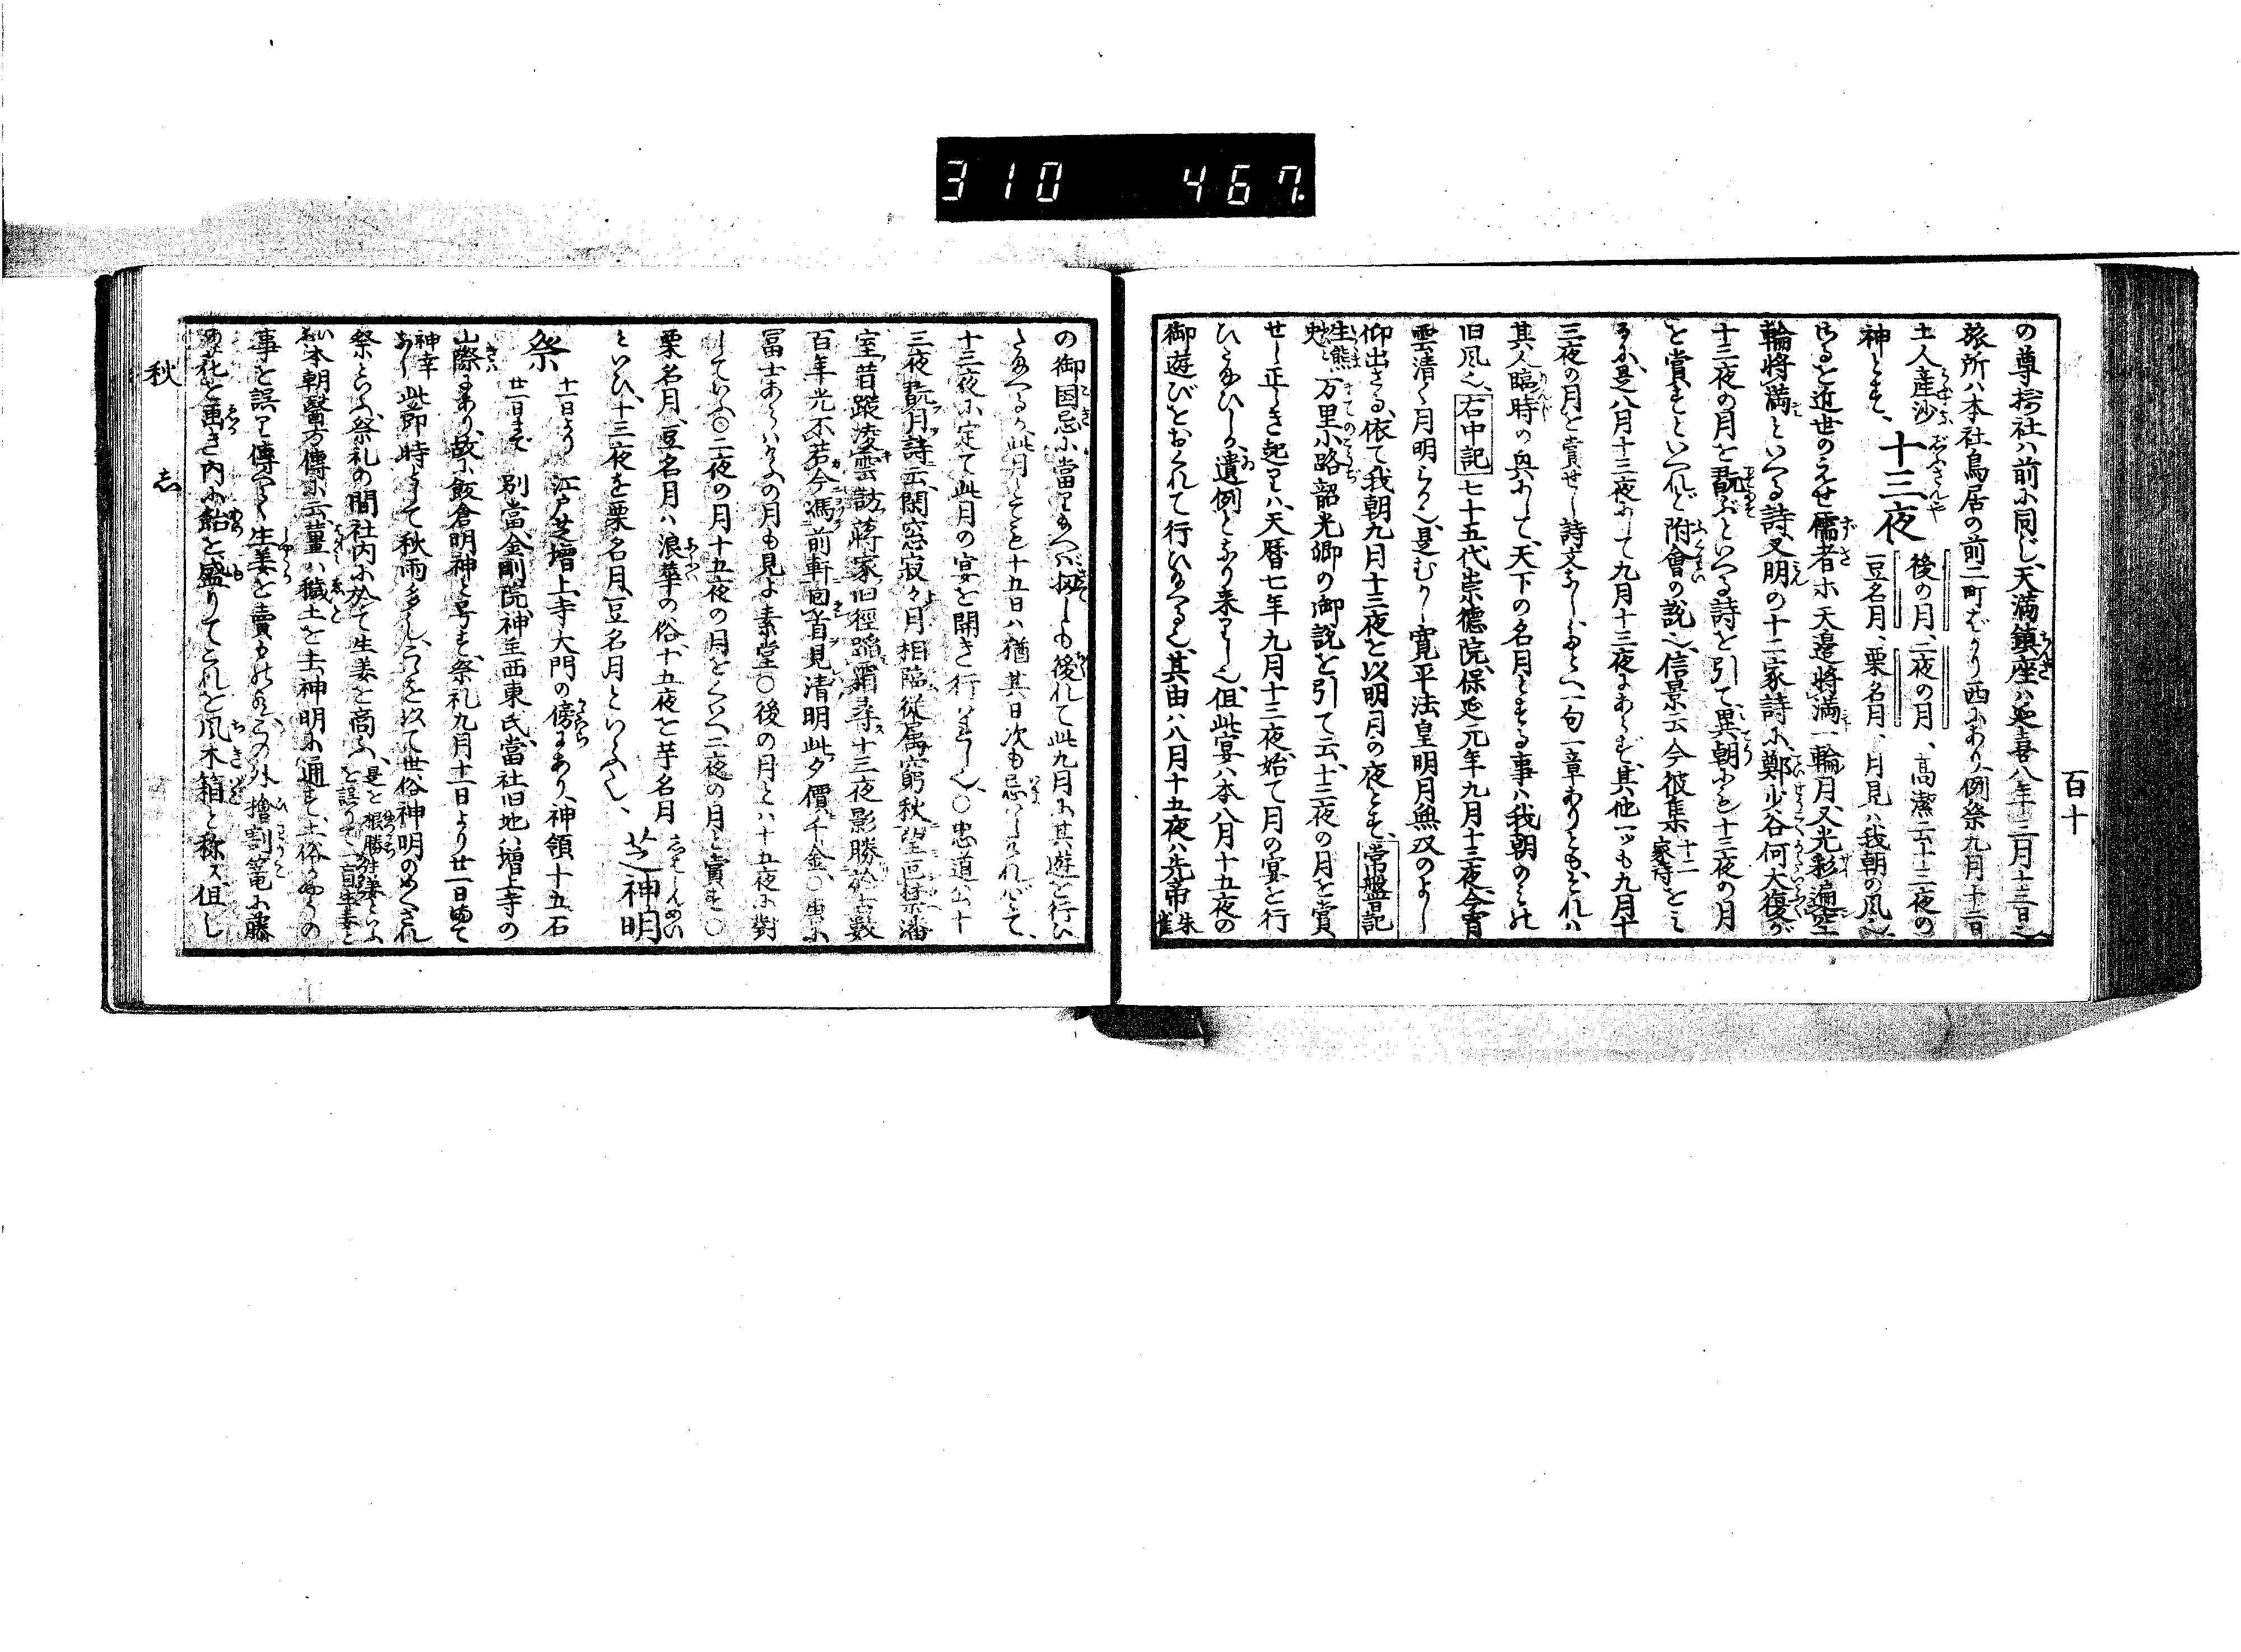 310 467
百十
の尊*社ハ前に同じ、天満鎮座ハ延喜八年十二月十三日也
旅所ハ本社鳥居の前二町ばかり西にあり、例祭九月十二日
土人産沙
神とす、十三夜 後の月、二夜の月、高潔云十三夜の
豆名月、栗名月、月見ハ我朝の風也
なるを近世のえせ儒者ホ天邉將満一輪月又光彩遍空
輪將満といへる詩、又明の十二家詩に、鄭少谷何大復が
十三夜の月を翫ぶといへる詩を引て、異朝にも十三夜の月
を賞すといへれど附會の説也、信景云今彼集十二家詩をミ
るに、是八月十三夜にして九月十三夜にあらず、其他一ツも九月十
三夜の月を賞せし詩文なし、たとへ一句一章ありとも、それハ
其人臨時の興にして、天下の名月とする事ハ我朝のミの
旧風也、右中記七十五代崇徳院、保延元年九月十三夜、今宵
雲清く月明らか也、是むかし寛平法皇明月無双のよし
仰出さる、依て我朝九月十三夜を以明月の夜とす、常盤記
生熊 万里小路韶光卿の御説を引て云、十三夜の月を賞
せし正しき起りハ、天暦七年九月十三夜、始て月の宴を行
ひたまひしが遺例となり来りし也、但此宴ハ本八月十五夜の
御遊びをおくれて行ひたまへる也、其由ハ八月十五夜ハ先帝朱雀
の御国忌に當りたまへバ、扨しも後れて此九月に其遊を行ひ
たまへるが、此月しとても十五日ハ猶其日次も忌ハしけれバとて、
十三夜に定て此月の宴を開き行ハれし也、○忠道公十
三夜翫月詩云、閑窓寂々月相臨従属窮秋望叵禁潘
室昔蹤凌雲訪蒋家旧徑蹈霜尋十三夜影勝於古數
百年光不若今馮前軒囘首見清明此夕價千金、○
冨士あらハけふの月も見よ素堂○後の月とハ十五夜に對
していふ○二夜の月十五夜の月をくハへ二夜の月を賞す○
栗名月、豆名月ハ浪華の俗、十五夜を芋名月
といひ、十三夜を栗名月、豆名月といふ也、芝神明
祭 十一日より廿一日まで 江戸芝増上寺大門の傍にあり、神領十五石
別當、金剛院、神主西東氏、當社旧地ハ増上寺の
山際にあり、故に飯倉明神と号す、祭礼九月十一日より廿一日迄て
神幸あり 此節時として秋雨多し、これを以て世俗神明のめくされ
祭といふ、祭礼の間社内に於て生姜を商ふ、是を根勝生姜といふを誤りて、盲生姜と
い 本朝醫方傳に云、薑ハ穢土を去、神明に通ず、土俗かゝるの
事を誤り傳へて、生姜を賣ものならん、この外檜割篭に藤
の花を画き、内に飴を盛りてこれを風木箱と称ズ、但し
秋
志